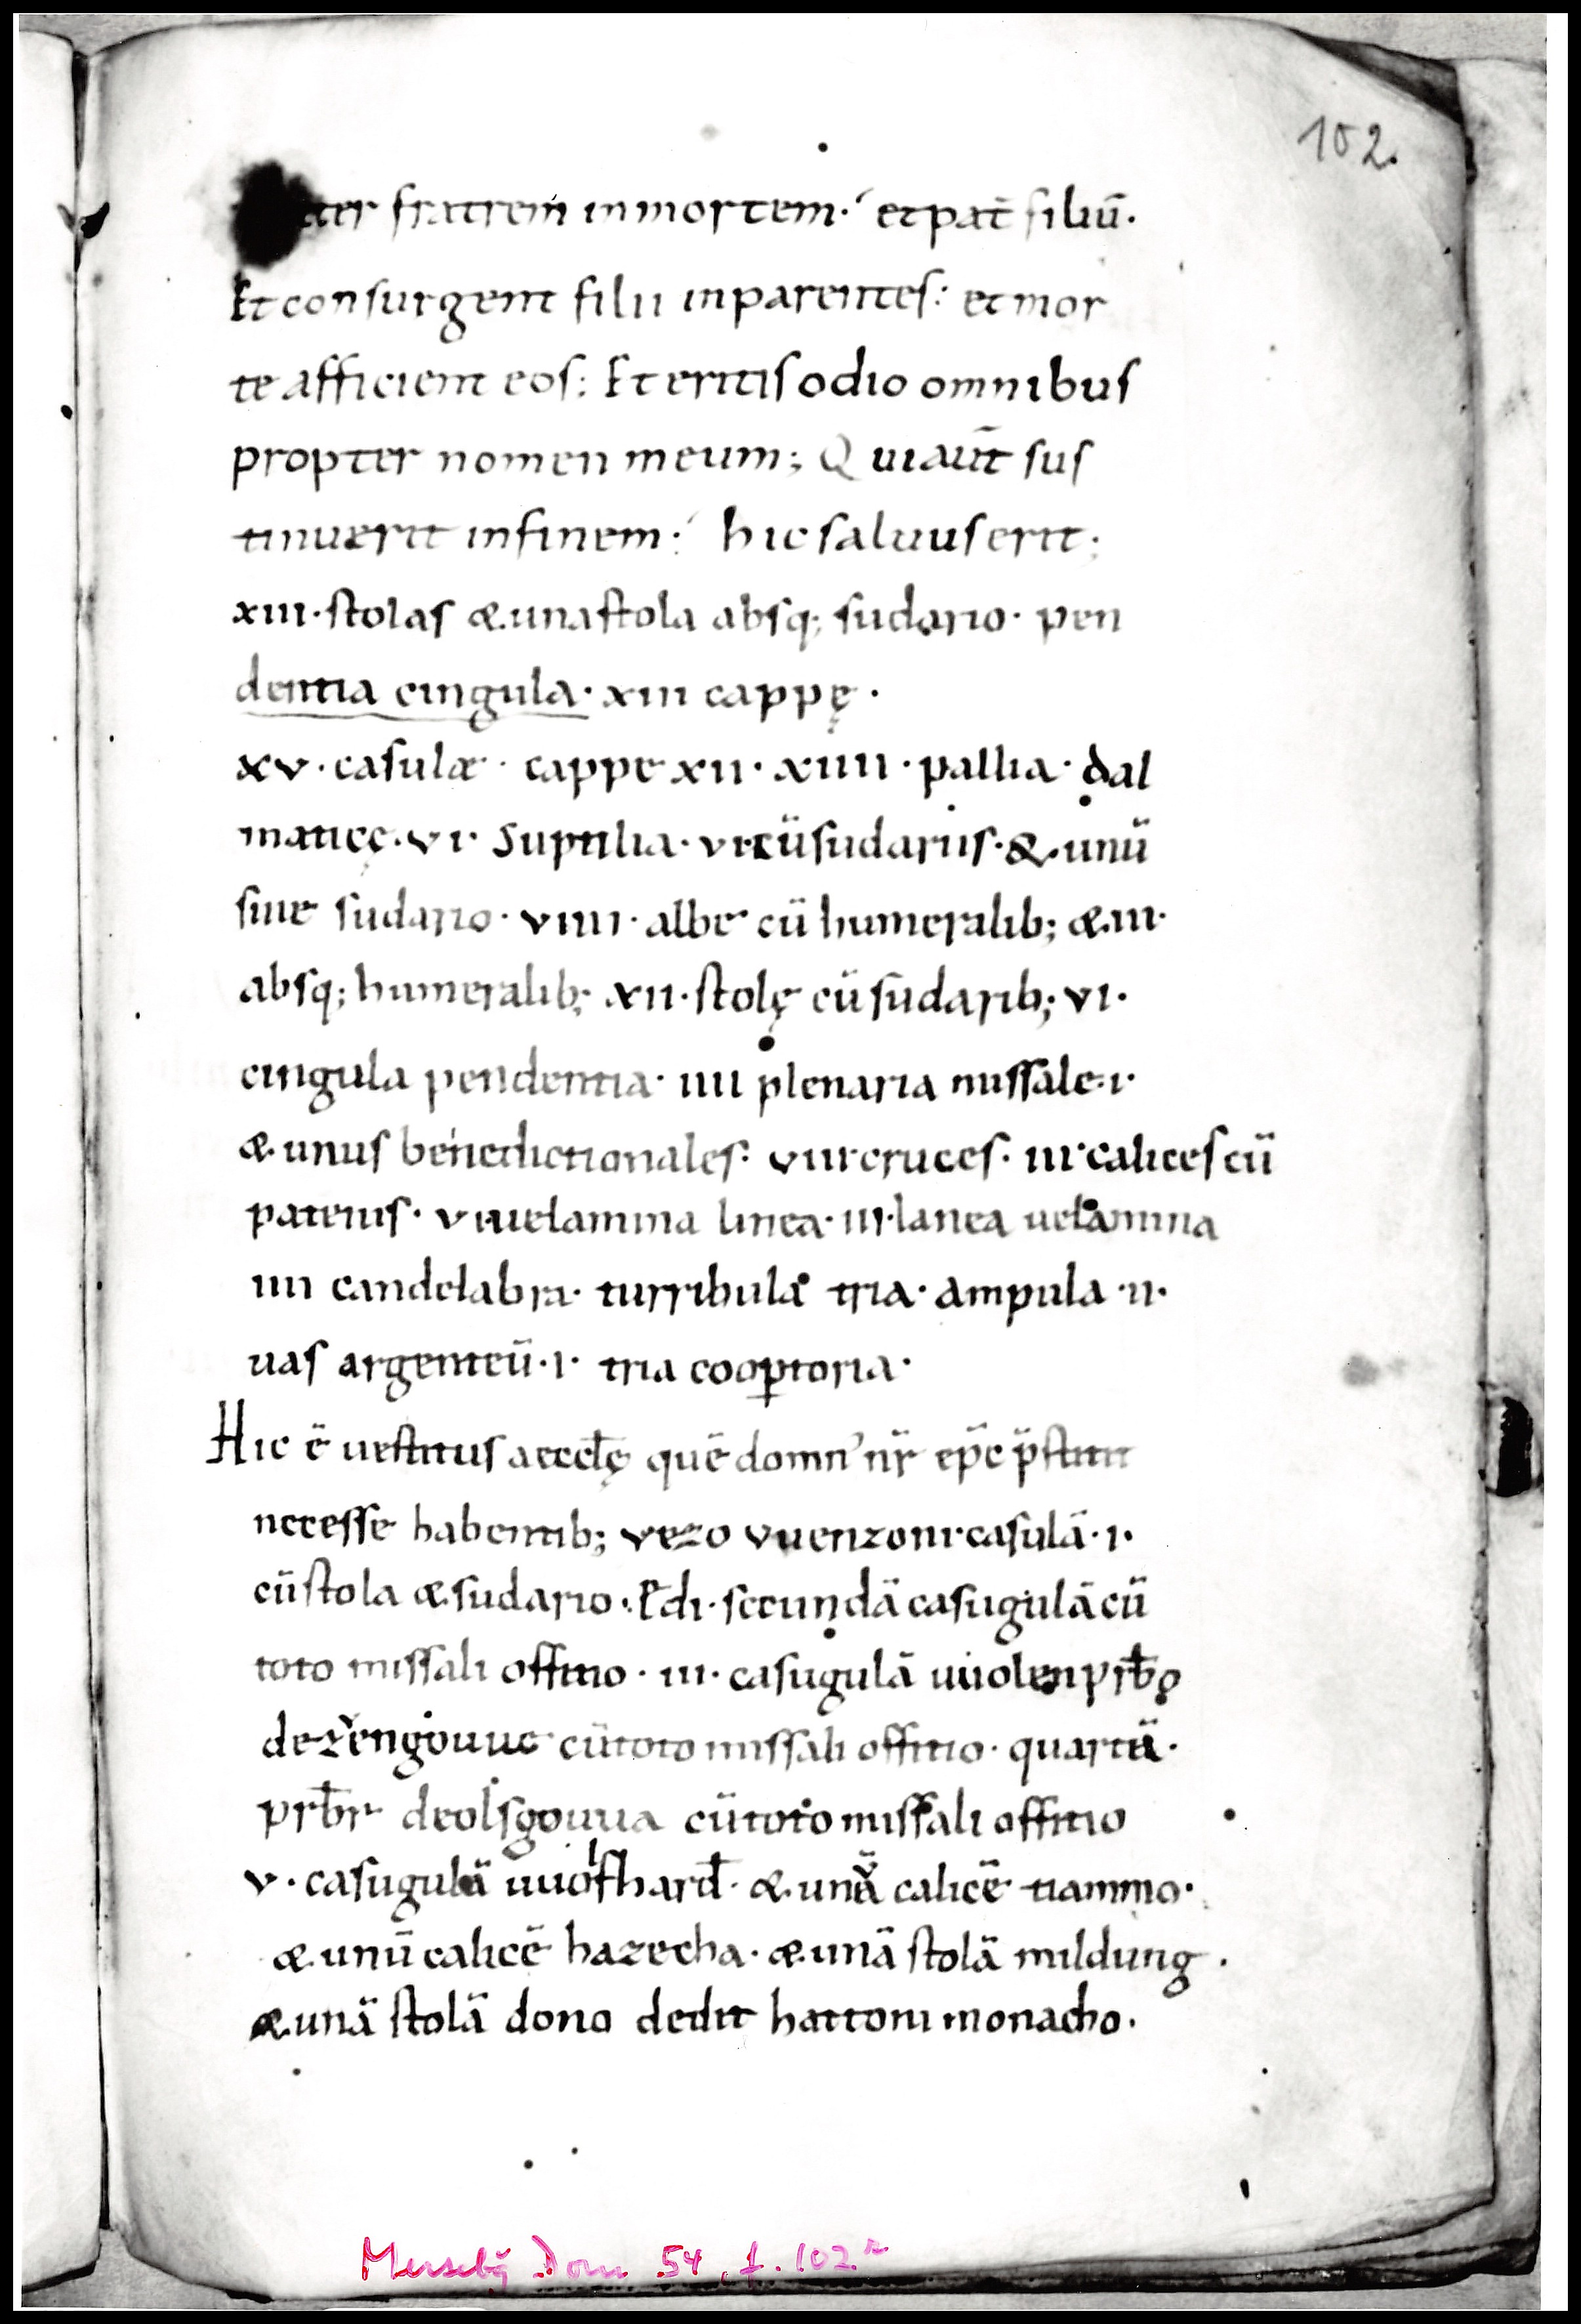 102.
ter fratrem inmortem· et pat̄ filiū·
Et consurgent filii inparentes: et mor
te afficient eos: Et eritis odio omnibus
propter nomen meum; Qui aūt sus
tinuerit infinem: hic saluus erit;
xiii· stolas &unastola absq; sudario· pen
dentia cingula· xiii cappę·
xv· casulæ· cappe xii· xiiii· pallia· dal
maticę· vi· Suptilia· vi· cūsudariis· & unū
sine sudario· viiii· albe cū humeralib; &iii·
absq; humeralib; xii· stolę cūsudarib; vi·
cingula pendentia· iiii plenaria missale·i·
&unus benedictionales· vii·cruces· iii·calices cū
patenis· vi·uelamina linea· iii·lanea uelamina
iiii candelabra· turribula tria· ampula ·ii·
uas argenteū·i· tria coop̱toria·
Hic ē uestitus aeccl̄ę quē domn' nr̄ ep̄c p̄stitit
necesse habentib; vezo vuenzoni·casulā·i·
cūstola &sudario· Edi· secundā casugulā cū
toto missali offitio· iii· casugulā uuolen prb̄o
de zengouue cūtoto missali offitio· quartā·
prb̄r deolsgouua cūtoto missali offitio
v· casugulā uuolfhard̄· &unū calicē tiammo·
&unū calicē hazecha· &unā stolā mildung·
&unā stolā dono dedit hattoni monacho·
Mersebg Dom 54, f. 102r